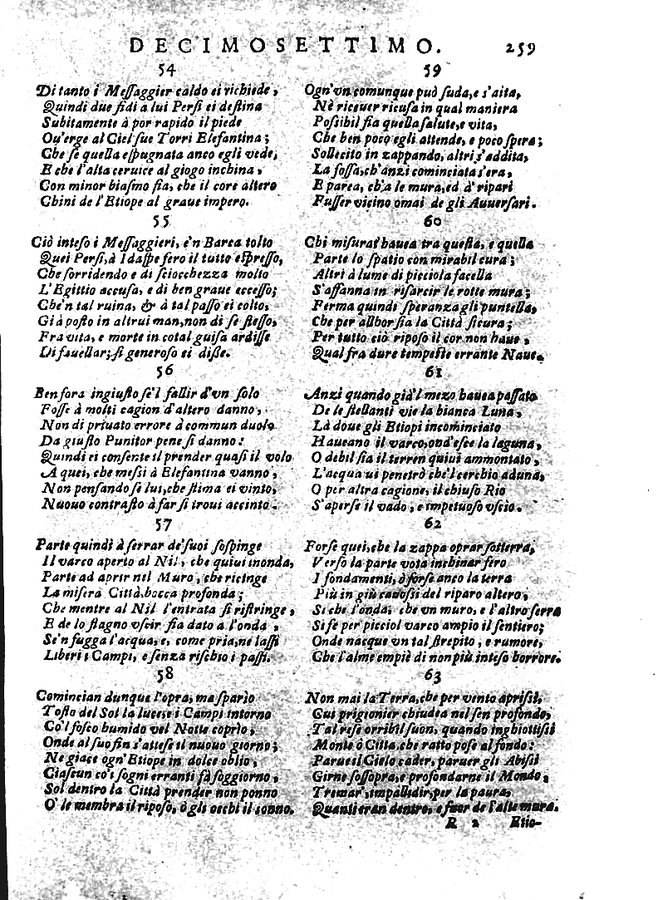 DECIMOSETTIMO. 259
54
Di tanto i Messaggier caldo ei richiede,
Quindi due fidi a lui Persi ei destina
Subitamente à por rapido il piede
Ou'erge al Ciel sue Torri Elefantina;
Che se quella espugnata anco egli vede,
E che l'alta ceruice al giogo inchina,
Con minor biasmo fia, che il core altero
Chini de l'Etiope al graue impero.
55
Ciò inteso i Messaggieri, e'n Barca tolto
Quei Persi, à Idaspe fero il tutto espresso,
Che sorridendo e di sciocchezza molto
L'Egittio accusa, e di ben graue eccesso;
Che'n tal ruina, & à tal passo ei colto,
Già posto in altrui man, non di se stesso,
Fra vita, e morte in cotal guisa ardisse
Di fauellar; si generoso ei disse.
56
Ben fora ingiusto se'l fallir d'vn solo
Fosse à molti cagion d'altero danno,
Non di priuato errore à commun duolo
Da giusto Punitor pene si danno:
Quindi ei consente il prender quasi il volo
A quei, che messi à Elefantina vanno,
Non pensando se lui, che stima ei vinto,
Nuouo contrasto à far si troui accinto.
57
Parte quindi à serrar de'suoi sospinge
Il varco aperto al Nil, che quiui inonda,
Parte ad aprir nel Muro, che ricinge
La misera Città, bocca profonda;
Che mentre al Nil l'entrata si ristringe,
E de lo stagno vscir fia dato a l'onda,
Se'n fugga l'acqua, e, come pria, ne lassi
Liberi i Campi, e senza rischio i passi.
58
Comincian dunque l'opra, ma spario
Tosto del Sol la luce, e i Campi intorno
Co'l fosco humido vel Notte coprìo,
Onde al suo fin s'attese il nuouo giorno;
Ne giace ogn'Etiope in dolce oblio,
Ciascun co'i sogni erranti fà soggiorno,
Sol dentro la Città prender non ponno
O' le membra il riposo, ò gli occhi il sonno.
59
Ogn'vn comunque può suda, e s'aita,
Nè riceuer ricusa in qual maniera
Possibil fia quella salute, e vita,
Che ben poco egli attende, e poco spera;
Sollecito in zappando, altri s'addita,
La fossa, ch'anzi cominciata s'era,
E parea, ch'a le mura, ed à'ripari
Fusser vicino omai de gli Auuersari.
60
Chi misurat'hauea tra questa, e quella
Parte lo spatio con mirabil cura;
Altri à lume di picciola facella
S'affanna in risarcir le rotte mura;
Ferma quindi speranza gli puntella,
Che per allhor fia la Città sicura;
Per tutto ciò riposo il cor non haue,
Qual fra dure tempeste errante Naue.
61
Anzi quando già'l mezo hauea passato
De le stellanti vie la bianca Luna,
Là doue gli Etiopi incominciato
Haueano il varco, ond'esce la laguna,
O debil fia il terren quiui ammontato,
L'acqua ui penetrò che'l cerchio aduna,
O per altra cagione, il chiuso Rio
S'aperse il vado, e impetuoso vscio.
62
Forse quei, che la zappa oprar sotterra,
Verso la parte vota inchinar fero
I fondamenti, ò forse anco la terra
Più in giù cauossi del riparo altero,
Si che l'onda, che vn muro, e l'altro serra
Si fe per picciol varco ampio il sentiero;
Onde nacque vn tal strepito, e rumore,
Che l'alme empiè di non più inteso horrore.
63
Non mai la Terra, che per vento aprissi,
Cui prigionier chiudea nel sen profondo,
Tal rese orribil suon, quando inghiottissi
Monte ò Città, che ratto pose al fondo:
Parue il Cielo cader, paruer gli Abissi
Girne sossopra, e profondarne il Mondo,
Tremar', impallidir, per la paura,
Quanti eran dentro, e fuor de l'alte mura.
R 2 Etio-